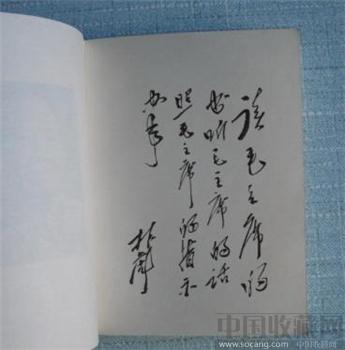 读毛主席的
书听毛主席的话
照毛主席的指示
办事
林彪
中国收藏网
www.socang.com 中国收藏网